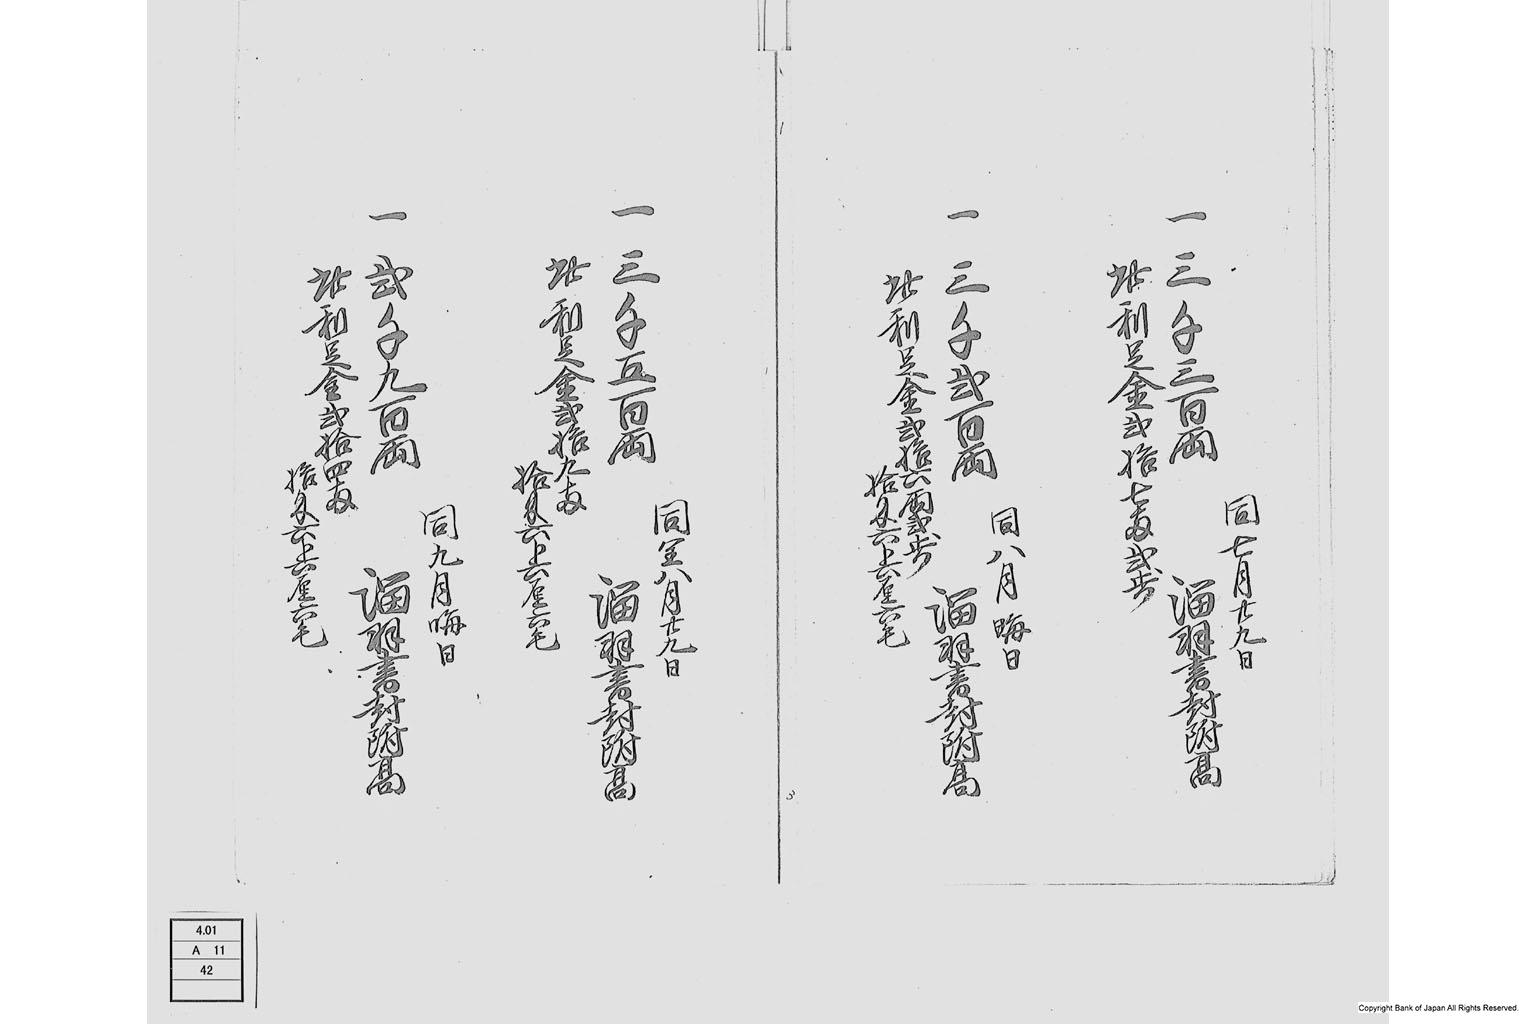 同七月廿九日
一 三千三百両 溜羽書封附高
此利足金弐拾七両弐歩
同八月晦日
一 三千弐百両 溜羽書封附高
此利足金弐拾六両弐歩
拾匁六分六厘六毛
同閏八月廿九日
一 三千五百両 溜羽書封附高
此利足金弐拾九両
拾匁六分六厘六毛
同九月晦日
一 弐千九百両 溜羽書封附高
此利足金弐拾四両
拾匁六分六厘六毛
3
4.01
A 11
42
Copyright Bank of Japan All Rights Reserved.